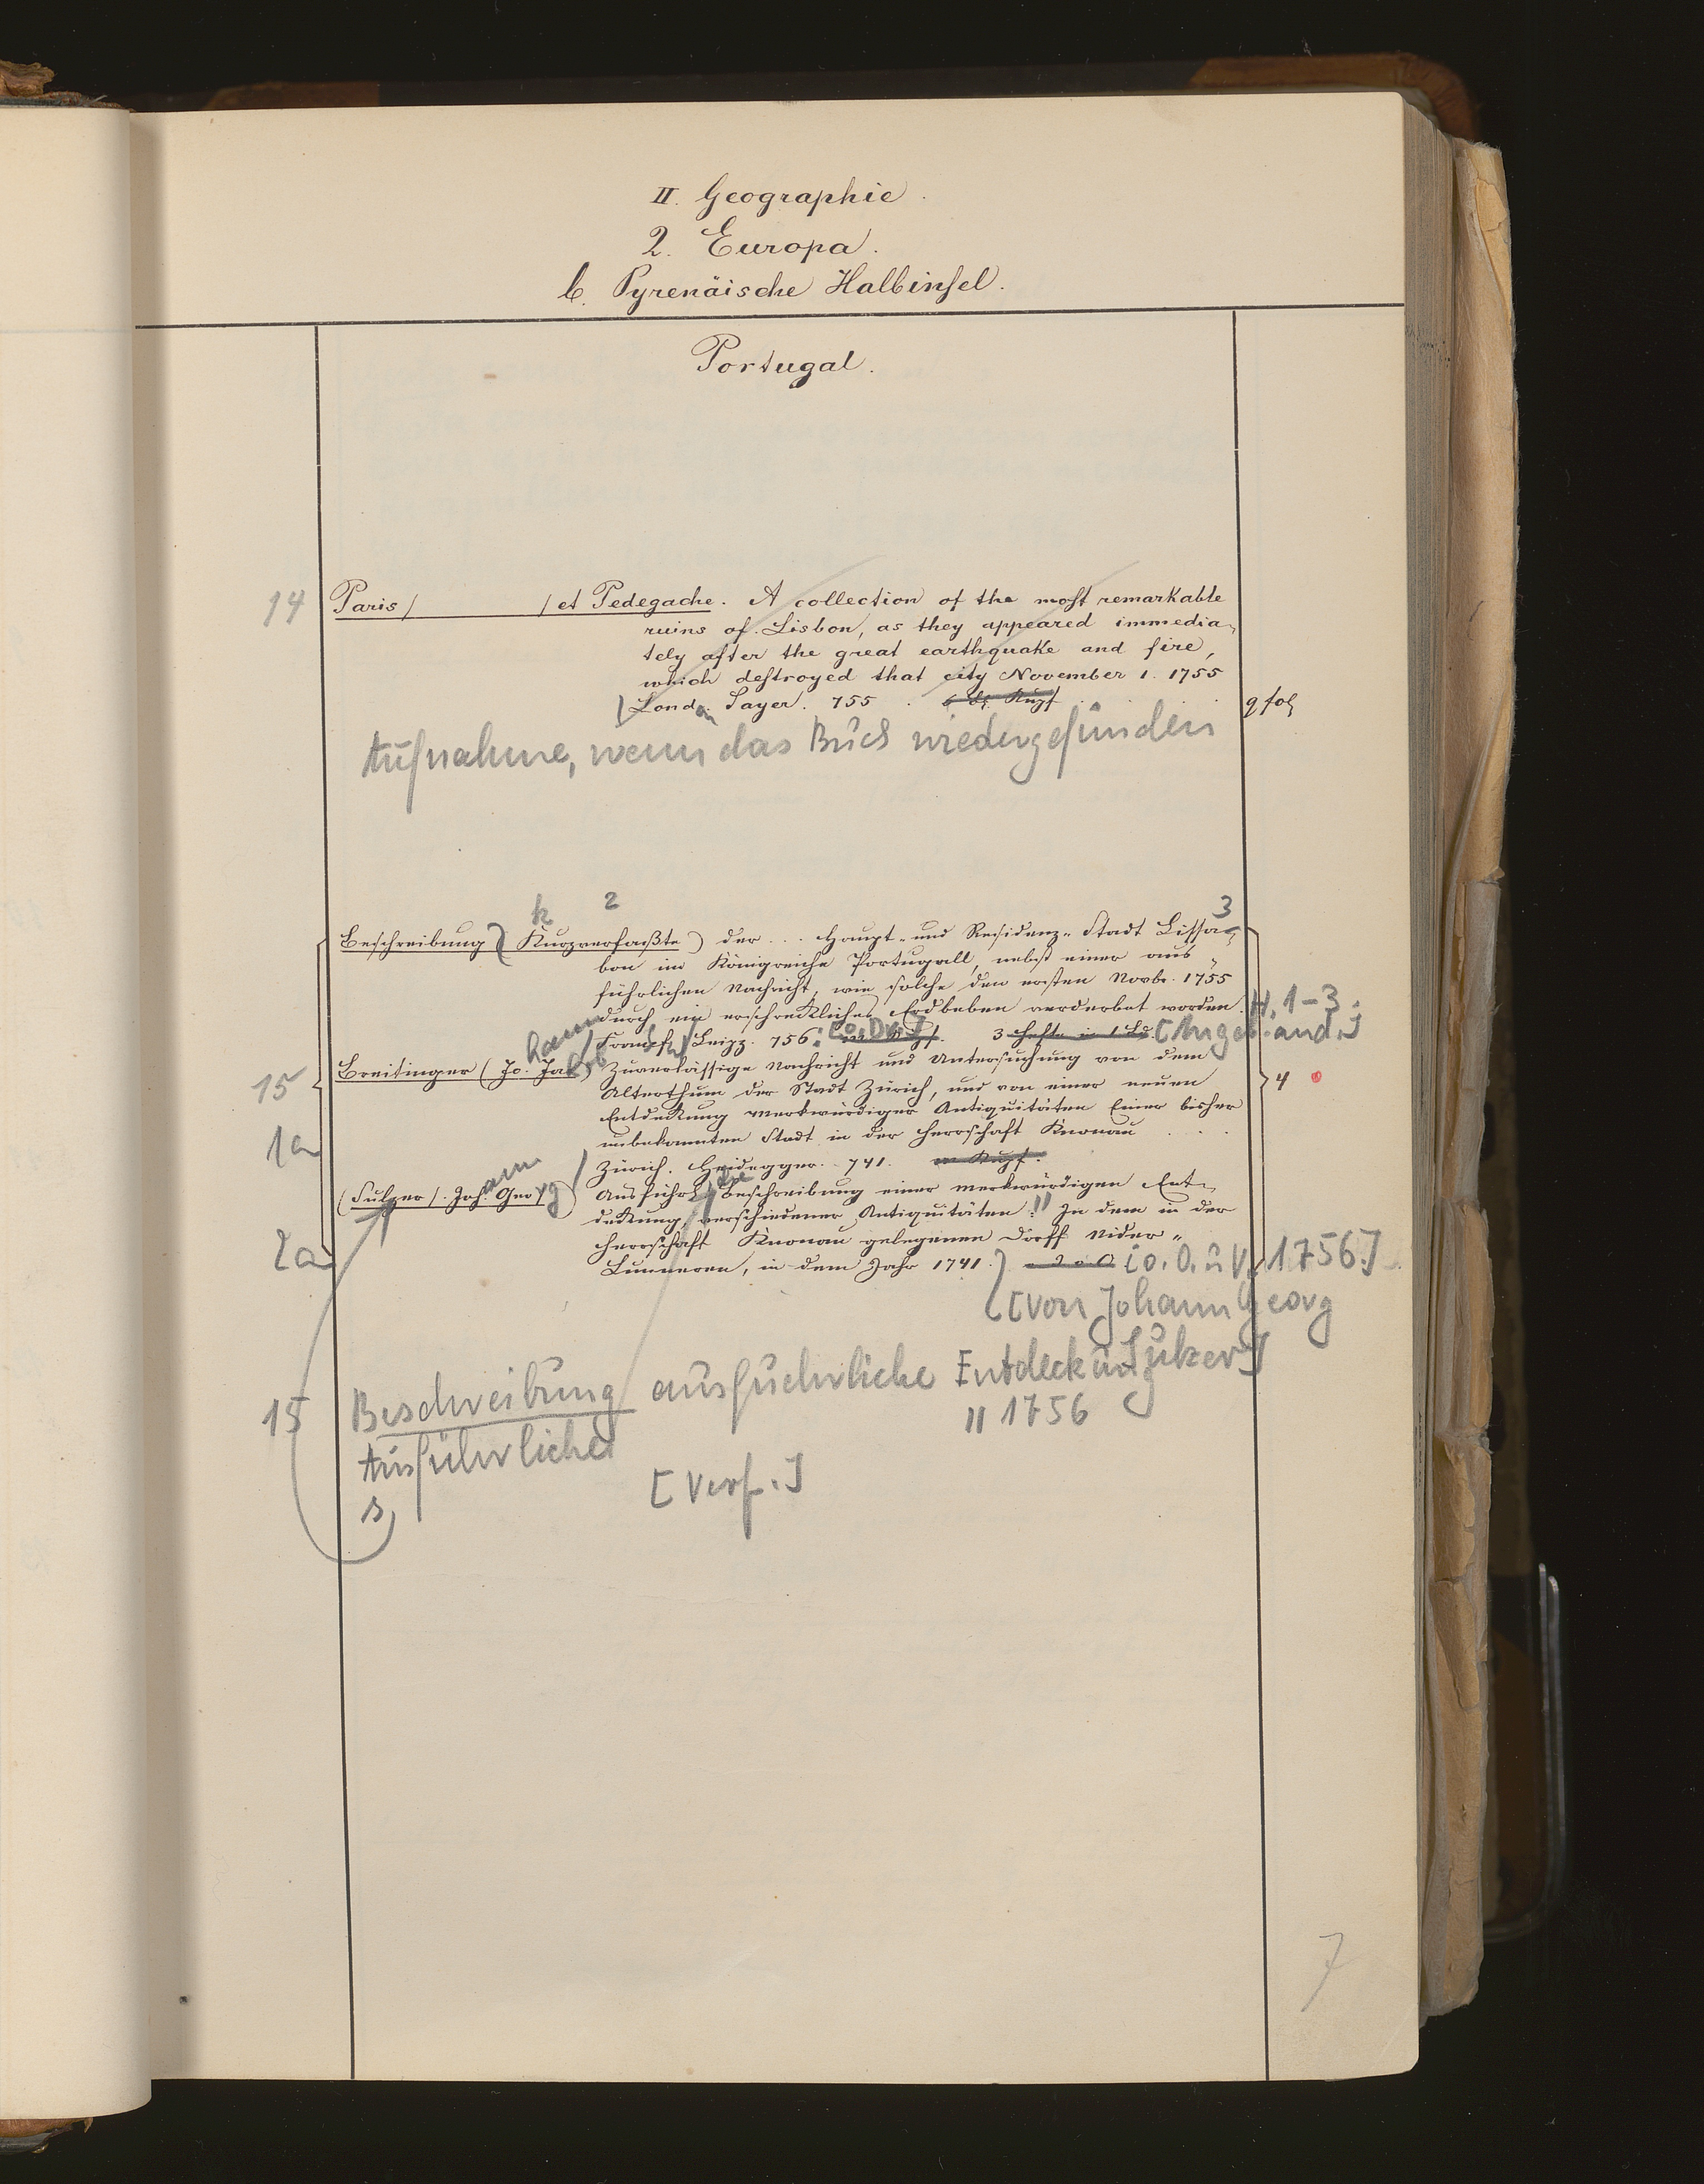 II. Geographie.
2. Europa.
b. Pyrenäische Halbinsel.
Portugal.
14 Paris / / et Pedegache. A collection of the most remarkable
ruins of Lisbon, as they appeared immedia-
tely after the great earthquake and fire,
which destroyed that city November 1. 1755
London Sayer. 755. 6 bl. Kupf. qfol
Aufnahme, wenn das Buch wiedergefunden
k 2 3
Beschreibung (Kurzverfaßte) der... Haupt- und Residenz-Stadt Lissa-
bon im Königreiche Portugall, nebst einer aus-
führlichen Nachricht, wie solche den ersten Novbr. 1755
durch ein erschreckliches Erdbeben verderbet worden. H. 1-3.
Frankf. Leipz. 756. [o. Dr.] 3 Hefte in 1 Bd. [Angeb. and.]
15 Breitinger (Johann Jakob) Zuverlässige Nachricht und Untersuchung von dem 4
Alterthum der Stadt Zürich, und von einer neuen
Entdekung merkwürdiger Antiquitäten einer bisher
1a unbekannten Stadt in der Herrschaft Knonau...
Zürich. Heidegger. 741. m Kupf.
(Sulzer /. Johann Georg) Ausführliche Beschreibung einer merkwürdigen Ent-
dekung verschiedener Antiquitäten: " In dem in der
Herrschaft Knonau gelegenen Dorff Nider-
2a Lunneren, in dem Jahr 1741. [o. O. u V. 1756.]
[von Johann Georg
Sulzer]
15 Beschreibung ausfuehrliche Entdeckung
" 1756
Ausführliche
[Verf.]
s)
7